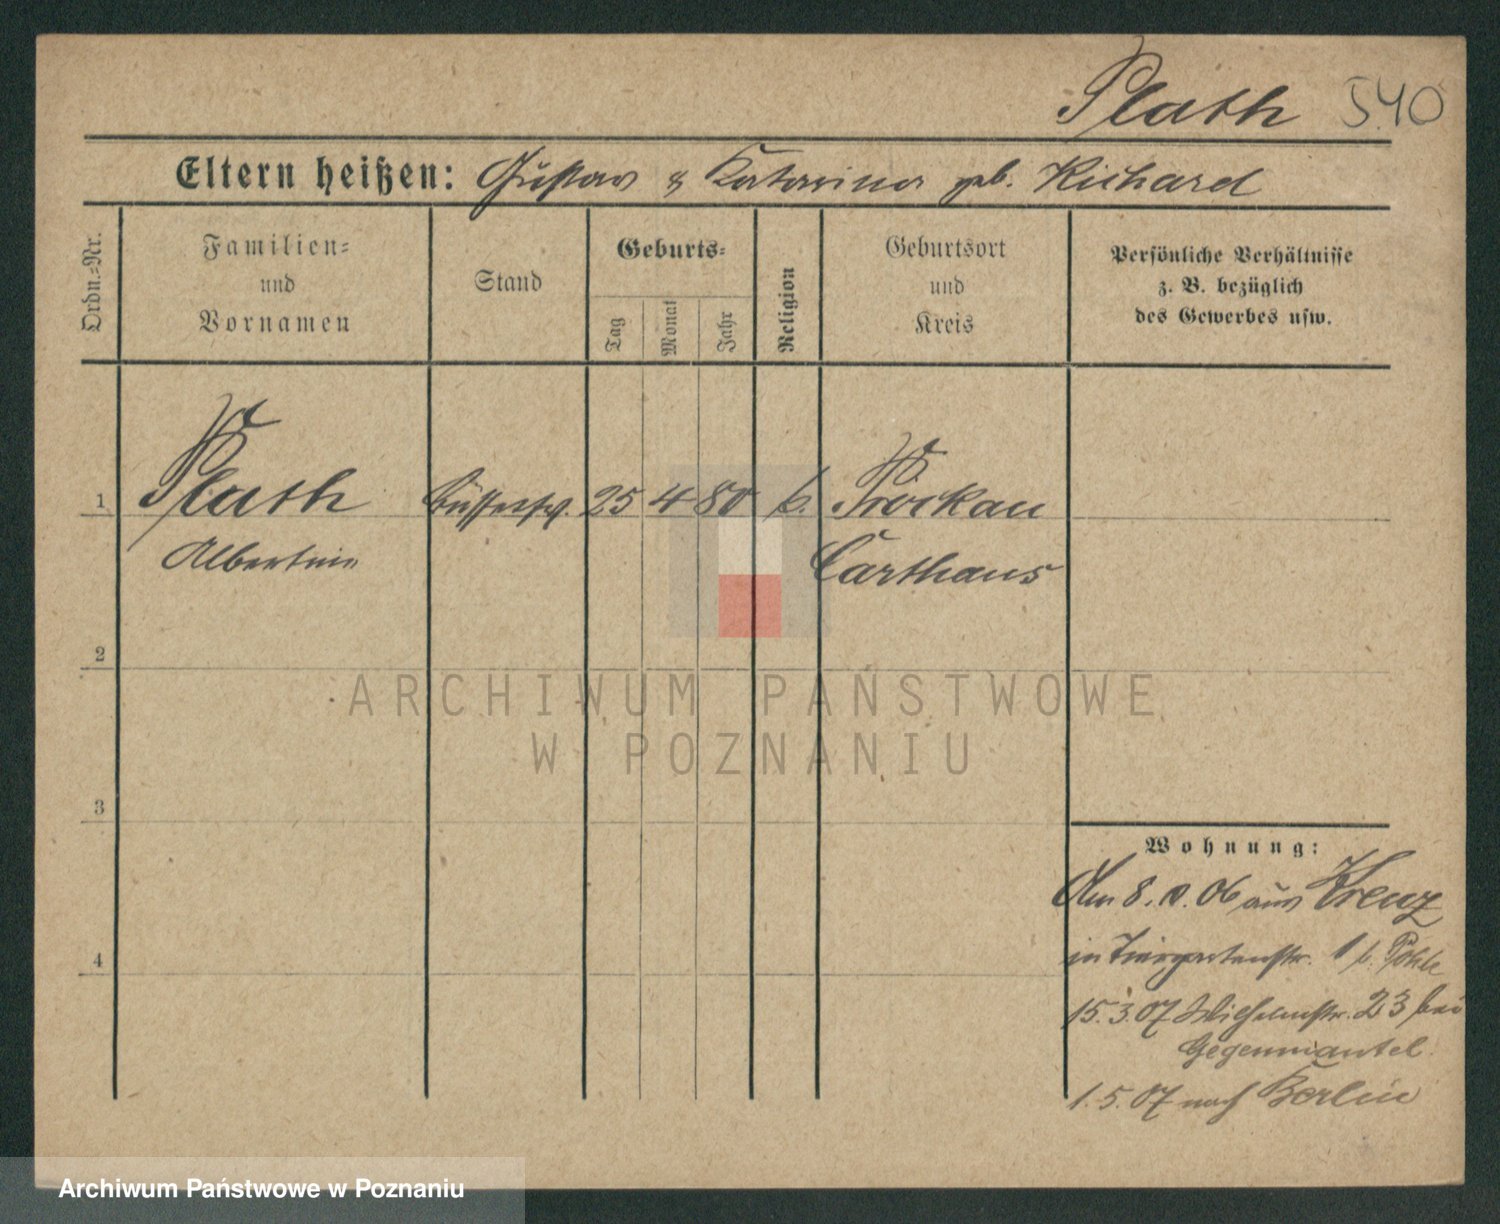 Plath 540
Eltern heißen: Gustav & Katarina geb. Richard
Ordn.=Nr.
Familien=
und
Vornamen
Stand
Geburts=
Tag
Monat
Jahr
Religion
Geburtsort
und
Kreis
Persönliche Verhältnisse
z. B. bezüglich
des Gewerbes usw.
1 Plath 25 4 80 Prockau
Albertine Carthaus
2
3
4
ARCHIWUM PAŃSTWOWE
W POZNANIU
Wohnung:
Am 8. 06 aus Kreuz
in Tiergartenstr. 1 b. Pohle
15.3.07 Wilhelmstr. 23 bei
Gegenmantel
1.5.07 nach Berlin
Archiwum Państwowe w Poznaniu